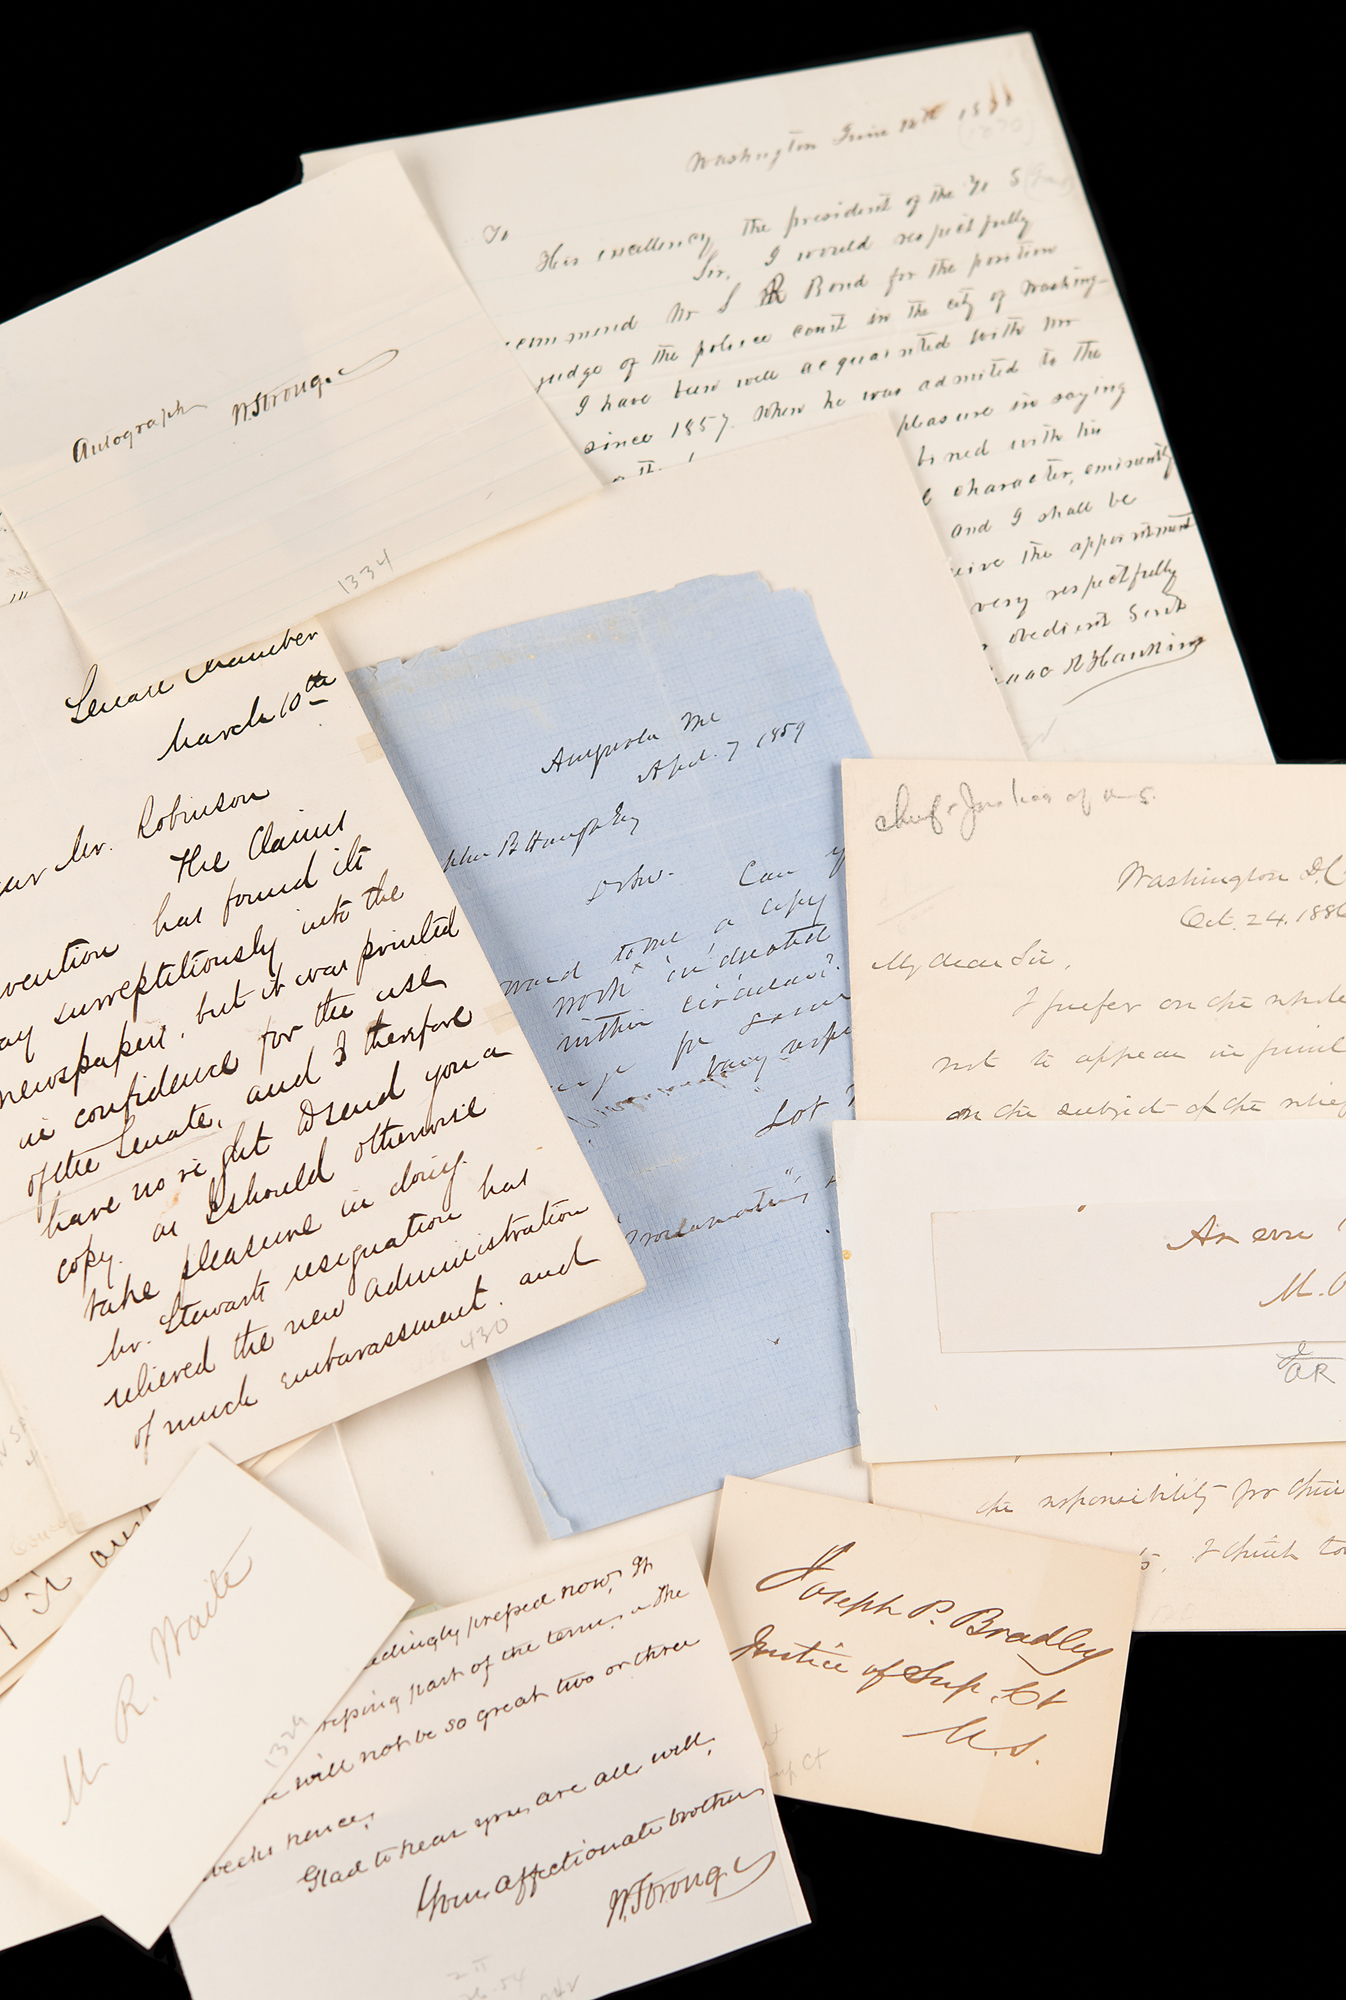 Washington June 18th 1870
(1870)
To
His excellency the president of the U S
Sir, I would respectfully
recommend Mr S R Bond for the position
judge of the police court in the city of Washing-
I have been well acquainted with Mr
since 1857. When he was admited to the
pleasure in saying
bined with his
character, eminently
and I shall be
the appointment
very respectfully
obedient Servt
Hawkins
Autograph W. Strong.
1334
Senate Chamber
March 10th
Mr. Robinson
The Claims
vention has found its
surreptitiously into the
newspapers, but it was printed
in confidence for the use
of the Senate, and I therefore
have no right to send you a
copy. as I should otherwise
take pleasure in doing.
Mr. Stewarts resignation has
relieved the new administration
of much embarassment. and
430
Augusta Me
April 7 1859
Dr Sir. Can
ward to me a copy
work indicated
within circular?
for same
Very
Lot
Chief Justice of U.S.
Washington D.C.
Oct. 24. 188
My dear Sir,
I prefer on the whole
not to appear in
on the subject of the
An
M.
the responsibility for
I think
Joseph P. Bradley
Justice of Sup. Ct
U.S.
M. R. Waite
132
pressed now. It
part of the term, in the
will not be so great two or three
weeks hence.
Glad to hear you are all well,
Your affectionate brother
W. Strong